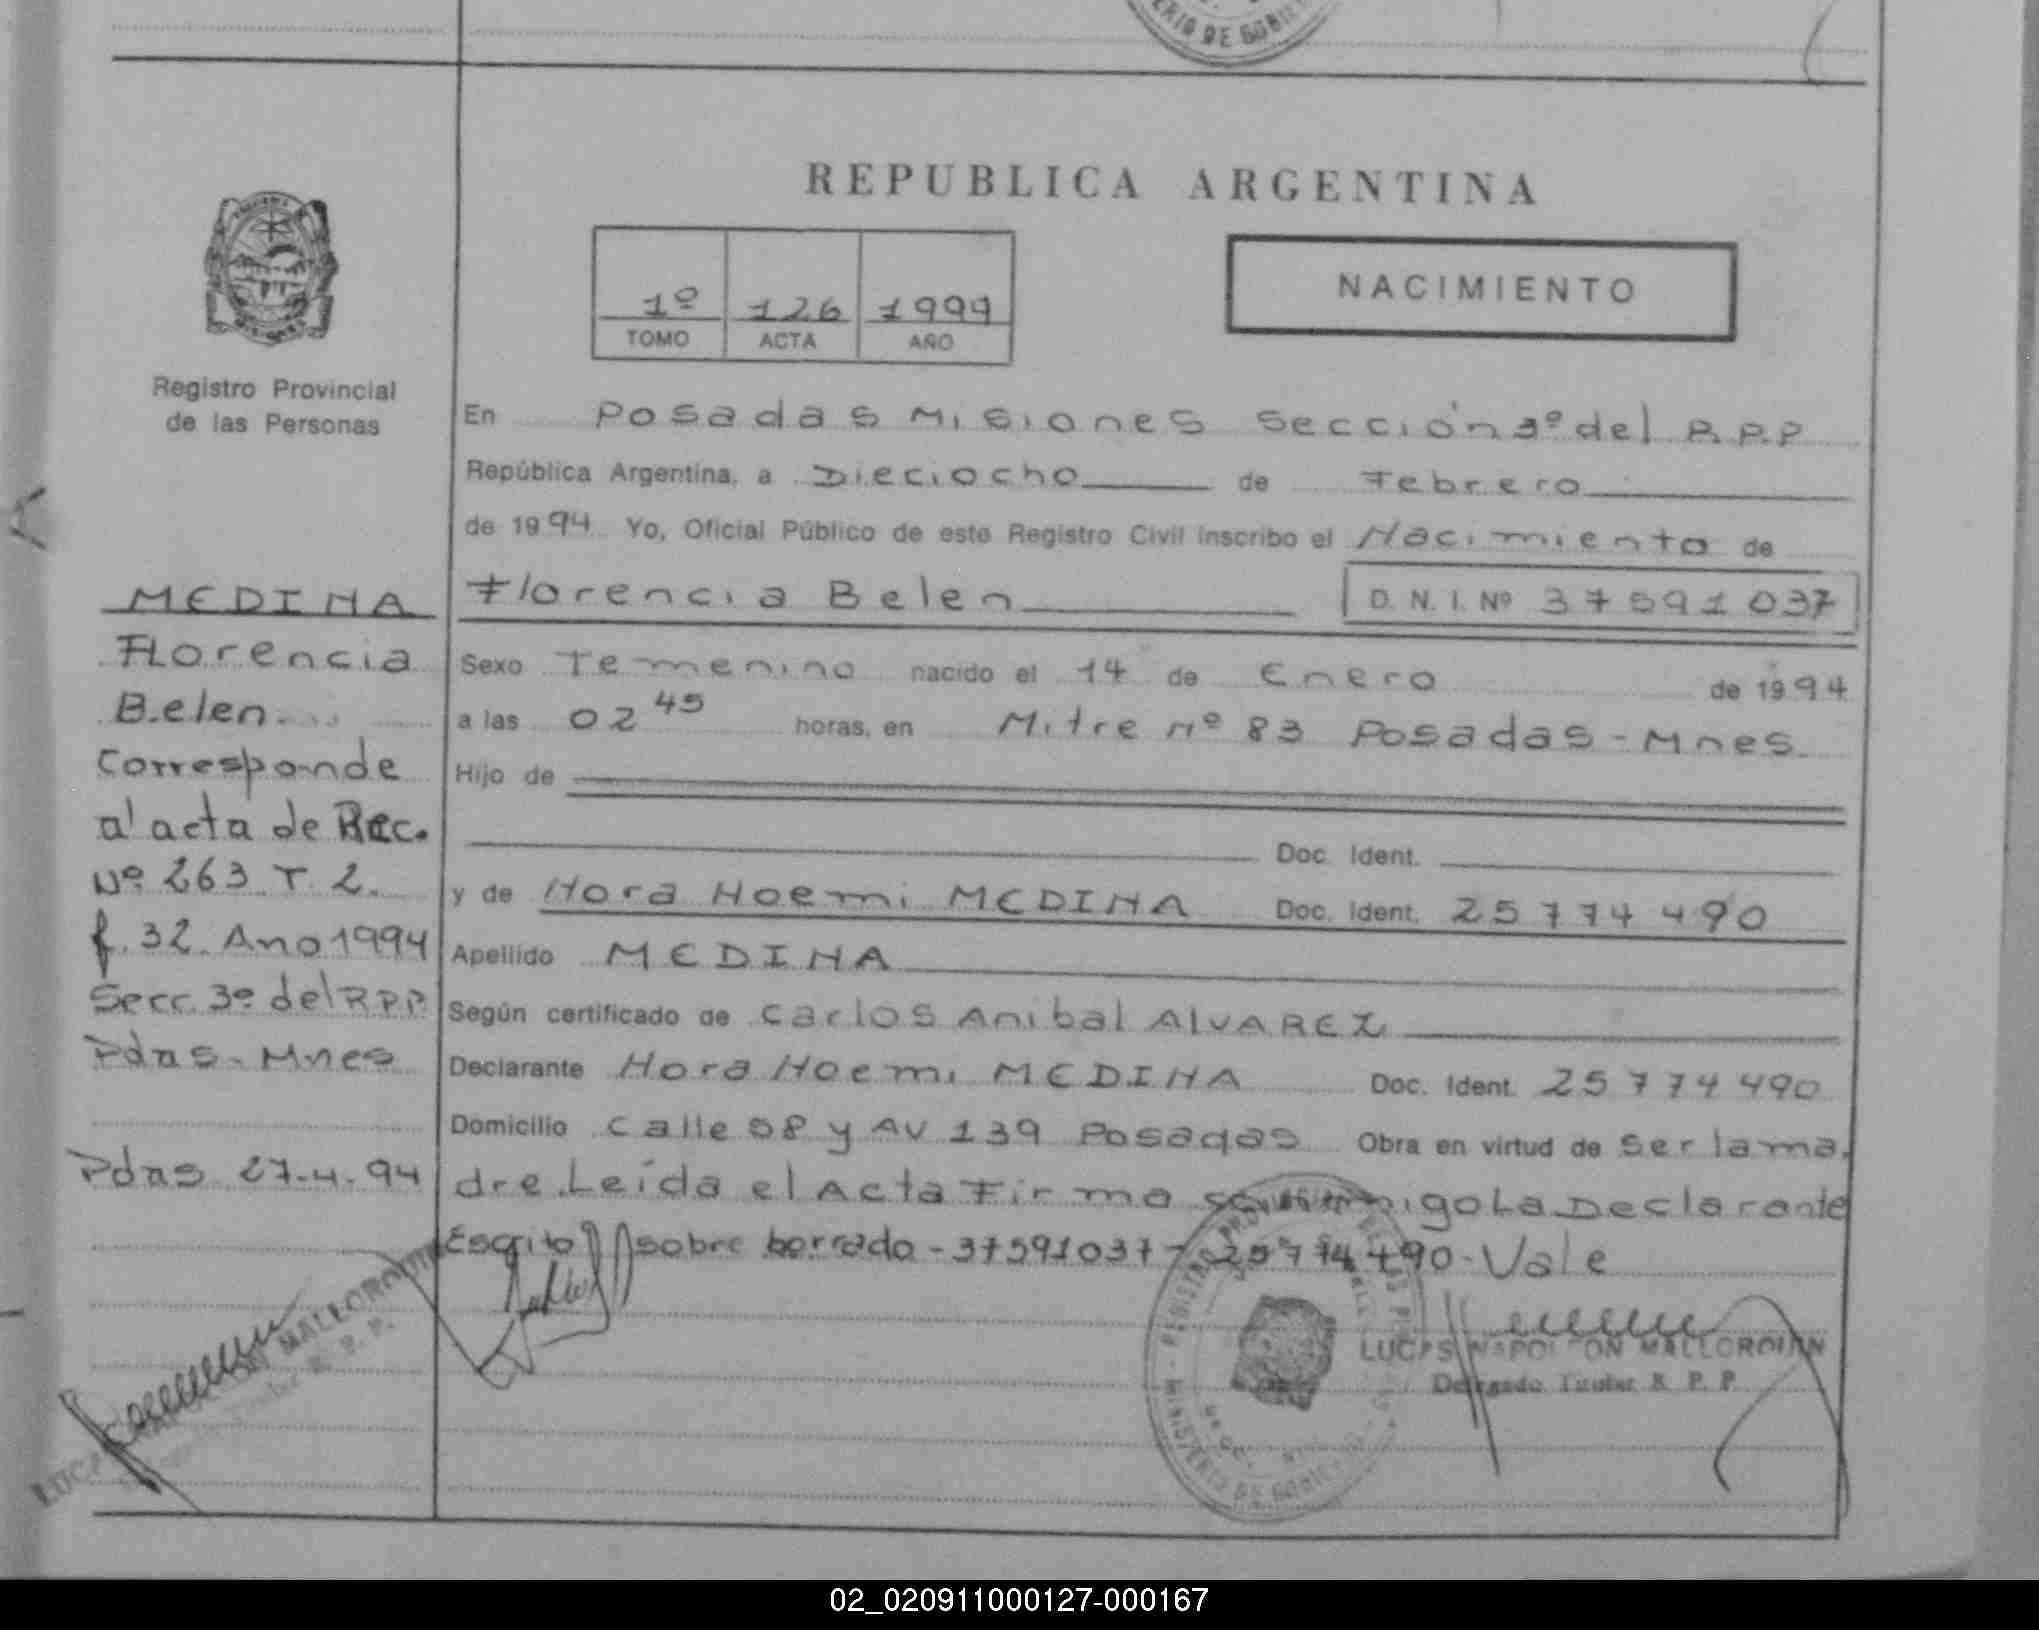 ERIO DE GOBIE
REPUBLICA ARGENTINA
1º 126 1994
TOMO ACTA AÑO
NACIMIENTO
Registro Provincial
de las Personas
En Posadas Misiones Sección 3º del R.P.P
República Argentina, a Dieciocho de Febrero
de 1994 Yo, Oficial Público de este Registro Civil inscribo el Nacimiento de
Florencia Belen D. N. I. Nº 37591037
Sexo Femenino nacido el 14 de Enero de 1994
a las 02 45 horas, en Mitre Nº 83 Posadas - Mnes
Hijo de
Doc. Ident.
y de Nora Noemi MEDINA Doc. Ident. 25774490
Apellido MEDINA
Según certificado de Carlos Anibal ALVAREZ
Declarante Nora Noemi MEDINA Doc. Ident. 25774490
Domicilio Calle 58 y AV 139 Posadas Obra en virtud de ser la ma
dre Leída el Acta Firma conmigo La Declarante
Escrito sobre borrado - 37591037 - 25774490 - Vale
MEDINA
Florencia
Belen
Corresponde
a' acta de Rec.
Nº 263 T. 2.
f. 32. Ano 1994
Secc. 3º del R.P.P.
Pdas - Mnes
Pdas 27-4-94
LUCAS NAPOLEON MALLORQUIN
Delegado Titular R. P. P.
MALLORQUIN
R. P. P.
MINISTERIO DE GOBIERNO
02_020911000127-000167